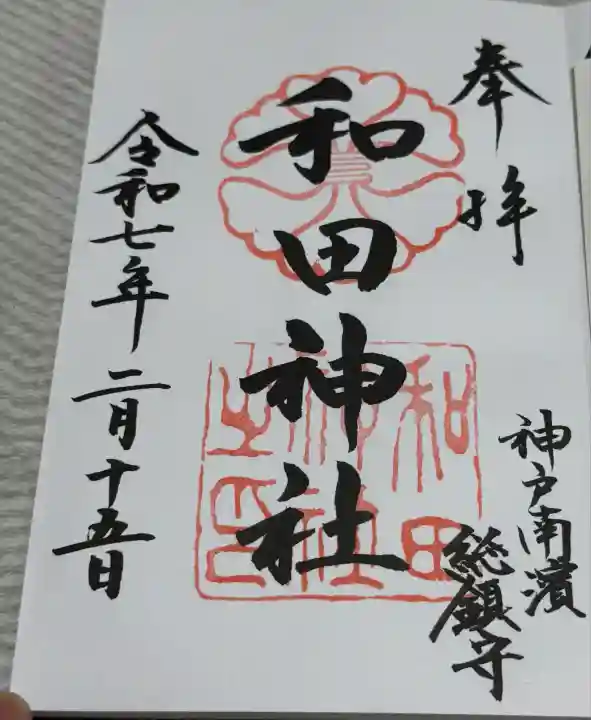 奉拝
神戸南濱
総鎮守
和田神社
和田
神社
之印
令和七年二月十五日